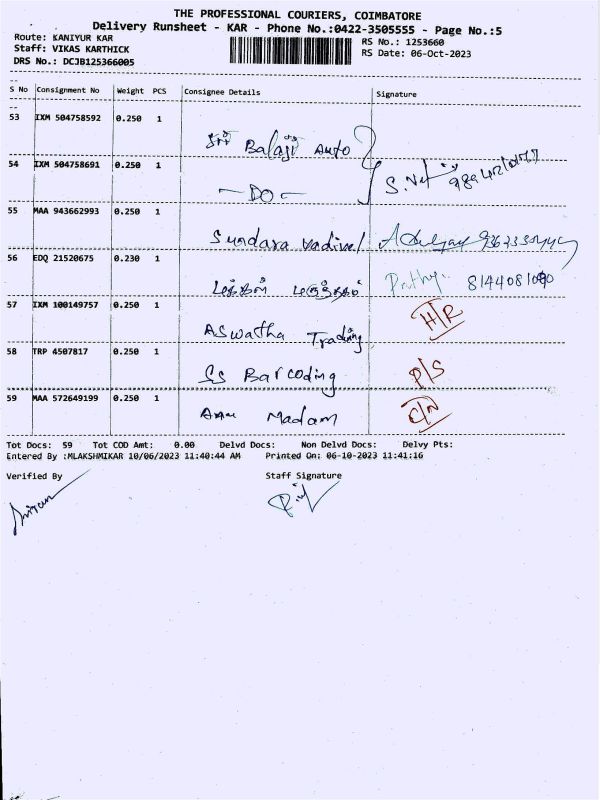 THE PROFESSIONAL COURIERS, COIMBATORE
Delivery Runsheet - KAR - Phone No.:0422-3505555 - Page No.:5
Route: KANIYUR KAR RS No.: 1253660
Staff: VIKAS KARTHICK RS Date: 06-Oct-2023
DRS No.: DCJB125366005
S No Consignment No Weight PCS Consignee Details Signature
53 IXM 504758592 0.250 1
Sri Balaji Auto
54 IXM 504758691 0.250 1
- DO -
55 MAA 943662993 0.250 1
Sundara Vadivel
56 EDQ 21520675 0.230 1
8144081090
57 IXM 100149757 0.250 1
Aswatha Trading H/R
58 TRP 4507817 0.250 1
SS Barcoding P/S
59 MAA 572649199 0.250 1
Madam C/N
Tot Docs: 59 Tot COD Amt: 0.00 Delvd Docs: Non Delvd Docs: Delvy Pts:
Entered By :MLAKSHMIKAR 10/06/2023 11:40:44 AM Printed On: 06-10-2023 11:41:16
Verified By Staff Signature